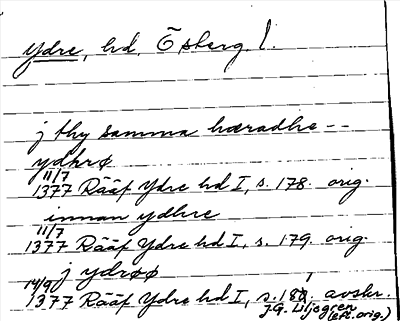 Ydre, hd, Österg. l.
j thy samma hæradhe --
ydhrø
11/7
1377 Rääf Ydre hd I, s. 178. orig.
innan ydhre
11/7
1377 Rääf Ydre hd I, s. 179. orig.
j ydrøø
14/9
1377 Rääf Ydre hd I, s. 181. avskr.
J.G. Liljegren
(eft. orig.)